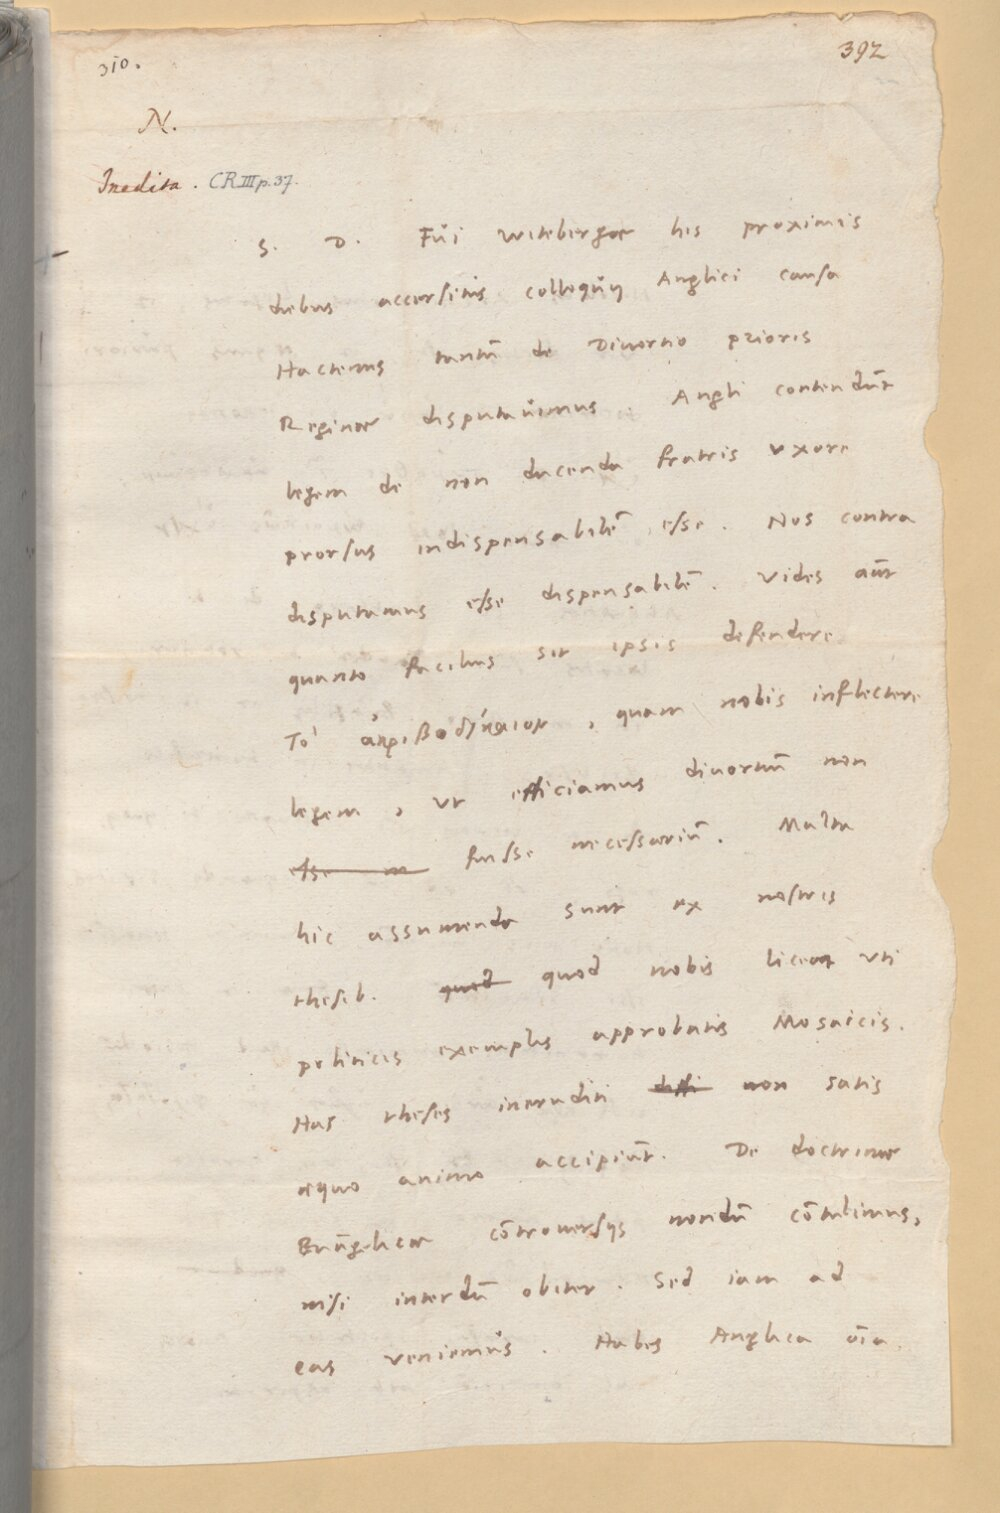 310.
392
N.
Inedita. CR III p. 37.
S. D. Fui Witebergae his proximis
diebus accersitus colloquij Anglici causa
Hactenus tantū de Diuortio prioris
Reginae disputauimus Angli contendūt
legem de non ducenda fratris vxore
prorsus indispensabilē esse. Nos contra
disputamus esse dispensabilē. Vides aūt
quanto facilius sit ipsis defendere
Τὸ ἀκριβοδίκαιον, quam nobis inflectere
legem, vt efficiamus diuortiū non
esse fuisse necessariū. Multa
hic assumenda sunt ex nostris
thesib. quod quod nobis liceat vti
politicis exemplis approbatis Mosaicis.
Has theses ineruditi non satis
aequo animo accipiūt. De doctrinae
Euāgelicae cōtrouersijs nondū cōtulimus,
nisi interdū obiter. Sed iam ad
eas veniemus. Habes Anglica oīa